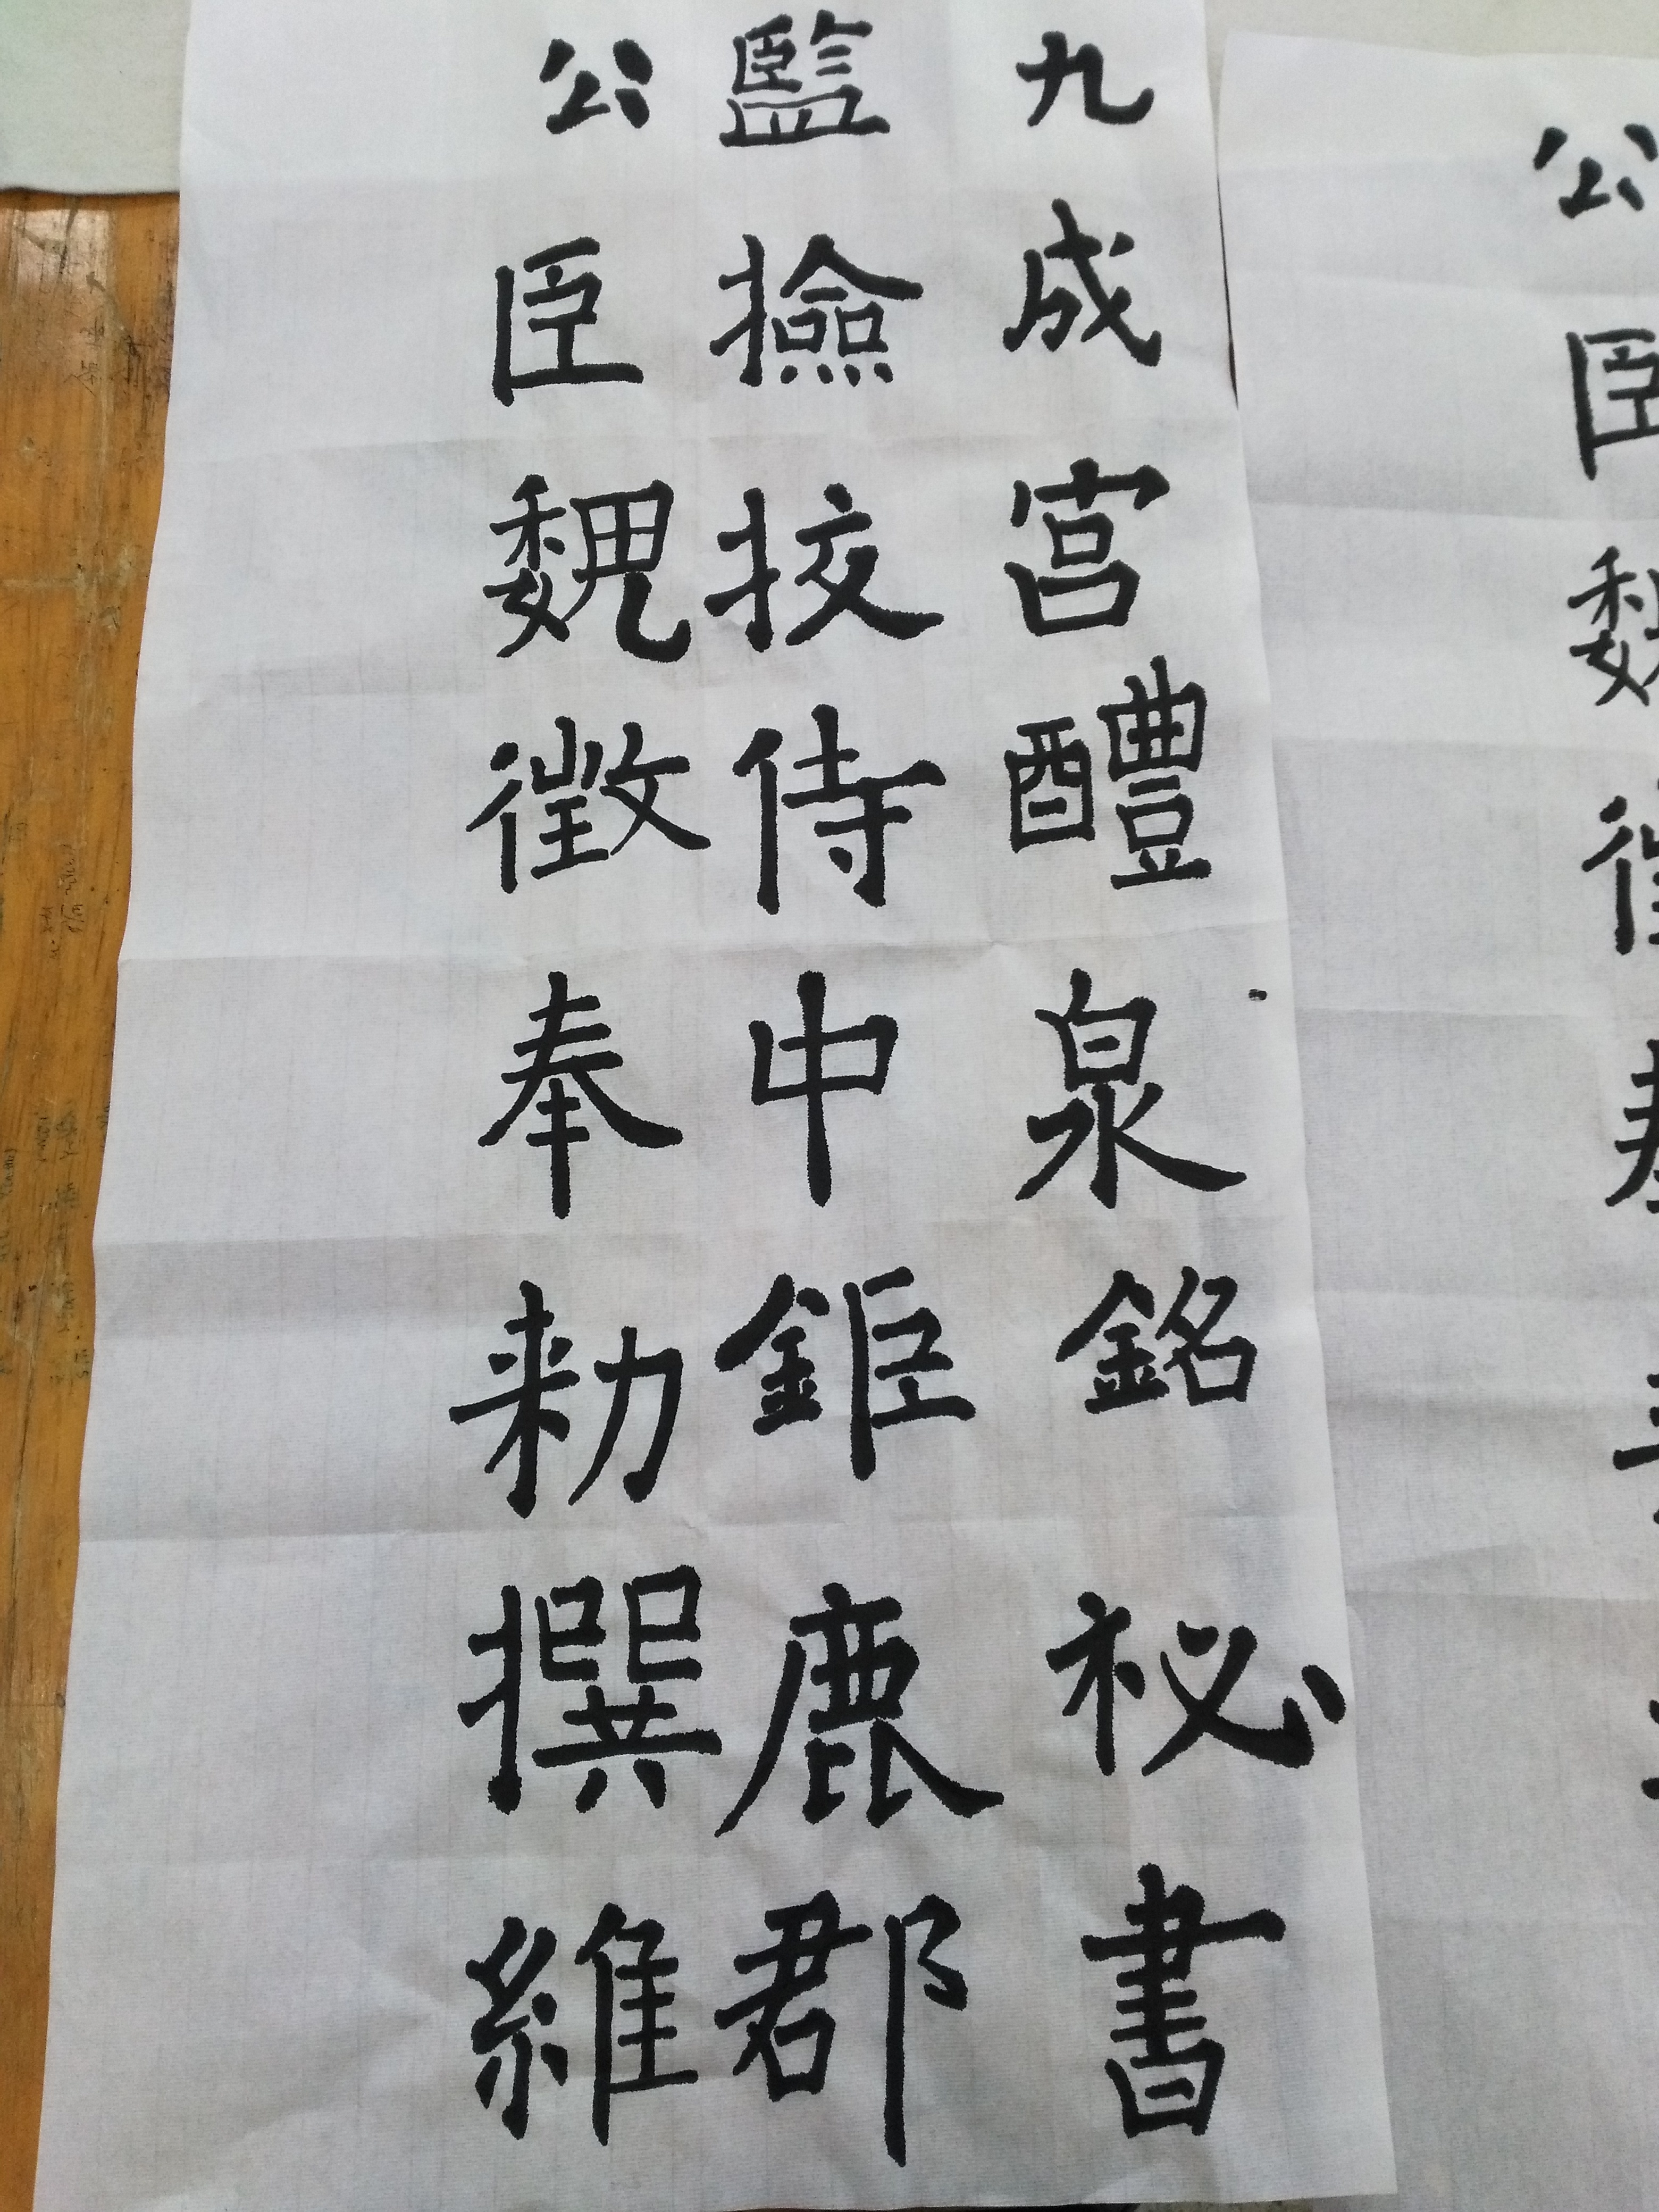 九成宮醴泉銘秘書
監撿挍侍中鉅鹿郡
公臣魏徵奉勑撰維
公臣魏